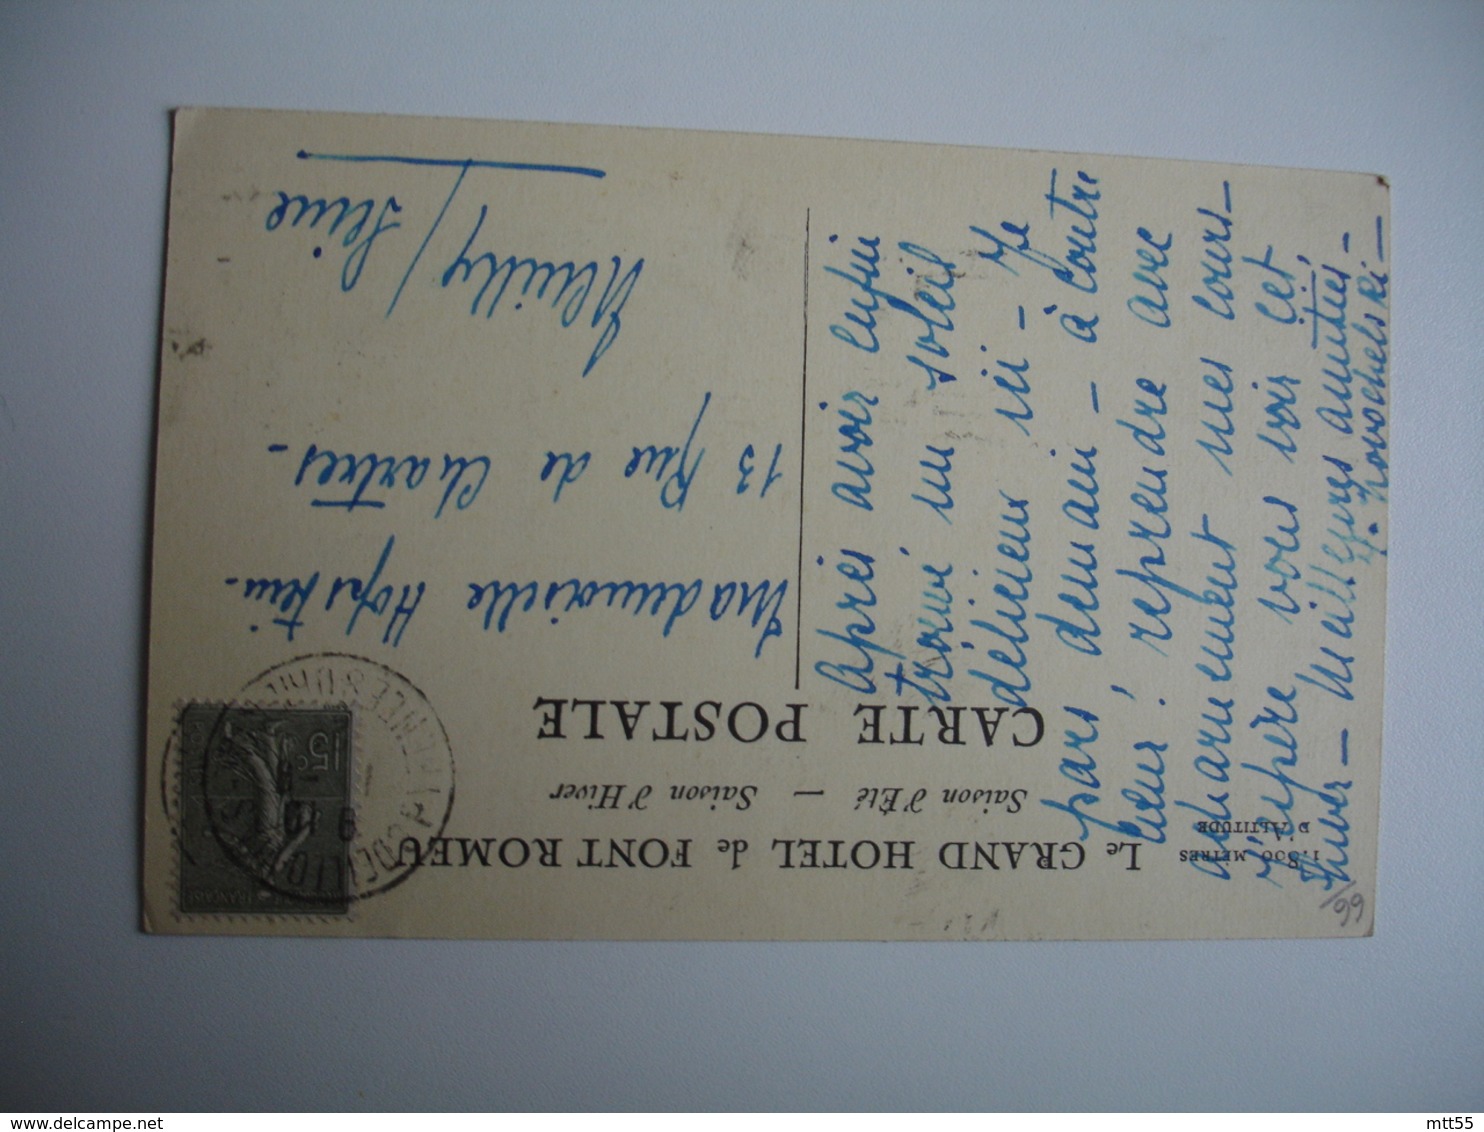 LE GRAND HOTEL de FONT ROMEU
1.800 MÈTRES
D'ALTITUDE
Saison d'Été — Saison d'Hiver
CARTE POSTALE
15c
FRANÇAISE
Mademoiselle Hopstein -
13 Rue de Chartres -
Neuilly / Seine
Après avoir enfin
trouvé un soleil
délicieux ici - Je
pars demain - à contre
cœur! reprendre avec
acharnement mes cours -
J'espère vous voir cet
hiver - Meilleures amitiés -
/99
mtt55